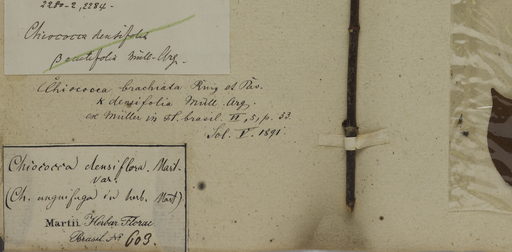 2280-2, 2284.
Chiococca densifolia
β acutifolia Müll-Arg.
Chiococca brachiata Ruiz et Pav.
densifolia Müll Arg.
ex Müller in Fl. brasil. VI, 5, p. 53
Sol. V. 1891.
Chiococca densiflora. Mart.
var.
(Ch. anguifuga in herb. Mart)
Martii Herbar. Florae
Brasil. No 603.